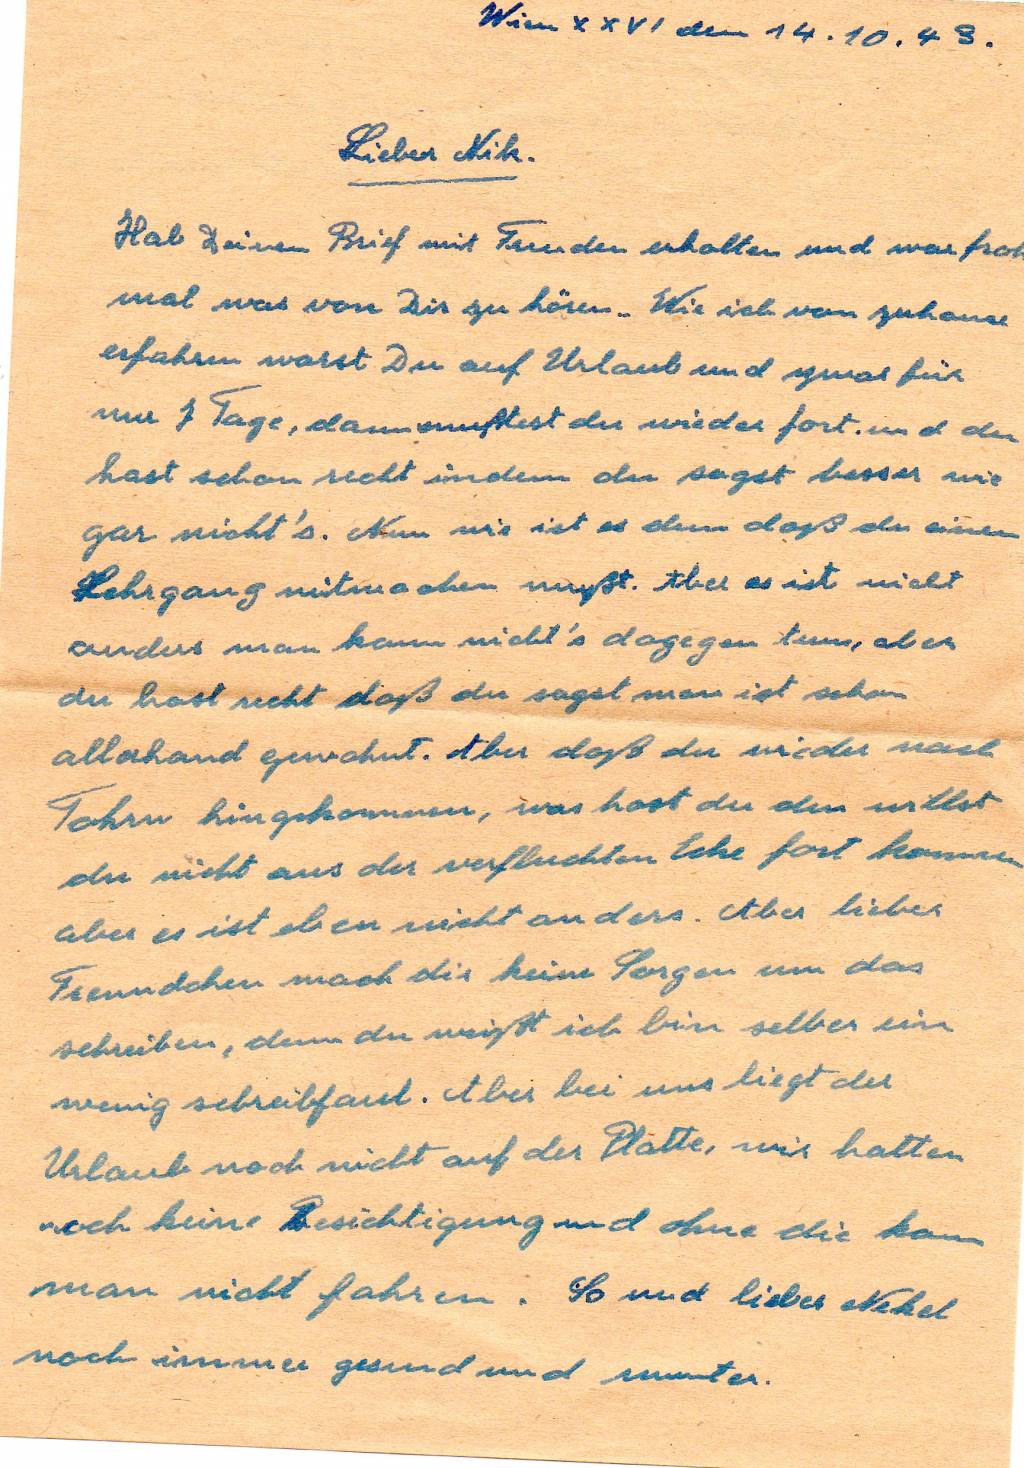 Wien XXVI den 14.10.43.
Lieber Nik.
Hab Deinen Brief mit Freuden erhalten und war froh
mal was von Dir zu hören. Wie ich von zuhause
erfahren warst Du auf Urlaub und zwar für
nur 7 Tage, dann mußtest du wieder fort. und du
hast schon recht indem du sagst besser wie
gar nicht's. Nun wie ist es den daß du einen
Lehrgang mitmachen mußt. Aber es ist nicht
anders man kann nicht's dagegen tun, aber
du hast recht daß du sagst man ist schon
allerhand gewohnt. Aber daß du wieder nach
hingekommen, was hast du den willst
du nicht aus der verfluchten Ecke fort kommen
aber es ist eben nicht anders. Aber lieber
Freundchen mach dir keine Sorgen um das
schreiben, denn du weißt ich bin selber ein
wenig schreibfaul. Aber bei uns liegt der
Urlaub noch nicht auf der Platte, wir hatten
noch keine Besichtigung und ohne die kann
man nicht fahren. So und lieber Nekel
noch immer gesund und munter.